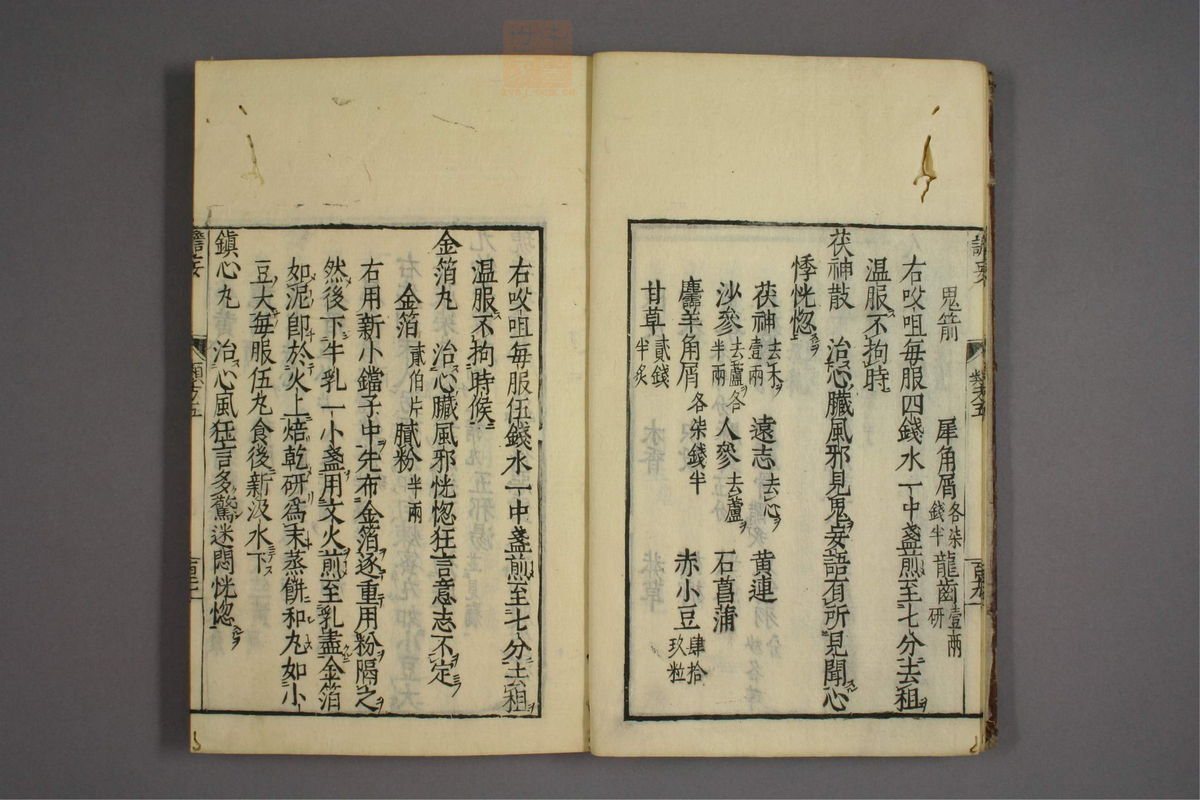 鬼箭 犀角屑各柒錢半 龍齒壹兩研
右㕮咀每服四錢水一中盞煎至七分去粗
溫服不拘時
茯神散 治心臟風邪見鬼妄語有所見聞心
悸恍惚
茯神去木壹兩 遠志去心 黄連
沙參去蘆各半兩 人參去蘆 石菖蒲
羚羊角屑各柒錢半 赤小豆肆拾玖粒
甘草貳錢半炙
右㕮咀每服伍錢水一中盞煎至七分去粗
溫服不拘時候
金箔丸 治心臟風邪恍惚狂言意志不定
金箔貳伯片 膩粉半兩
右用新小鐺子中先布金箔逐重用粉隔之
然後下牛乳一小盞用文火煎至乳盡金箔
如泥卽於火上焙乾研爲末蒸餅和丸如小
豆大每服伍丸食後新汲水下
鎭心丸 治心風狂言多驚迷悶恍惚